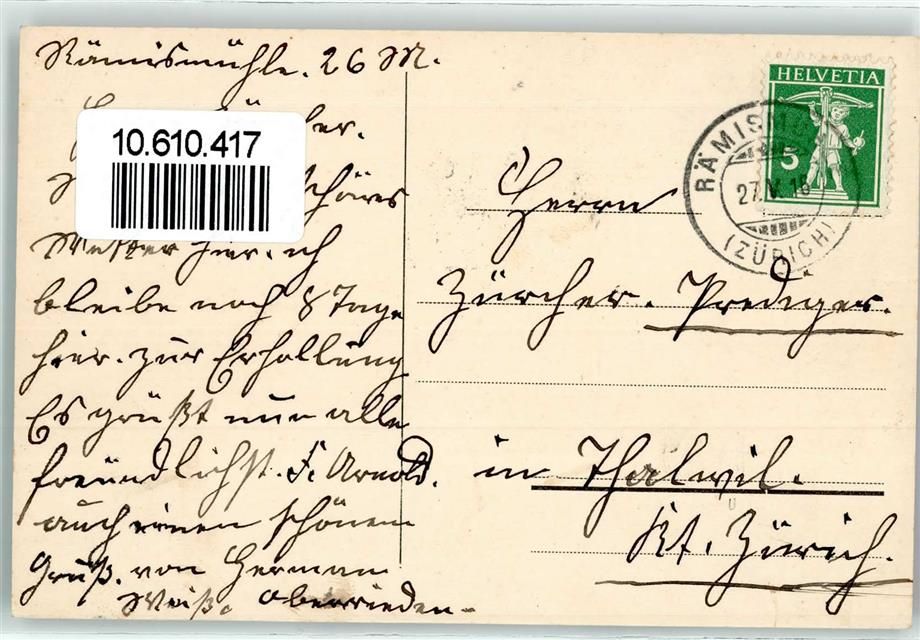 Rämismühle. 26 M.
10.610.417
schönes
Wetter hier. ich
bleibe noch 8 Tage
hier. zur Erhollung
Es grüßt nun alle
freundlichst. F. Arnold.
auch einen schönen
Gruß. von Herman
Weiß. Oberrieden
HELVETIA
5
RÄMISMÜ
27.V.18
(ZÜRICH)
Herrn
Zürcher. Prediger.
in Thalwil.
Kt. Zürich.